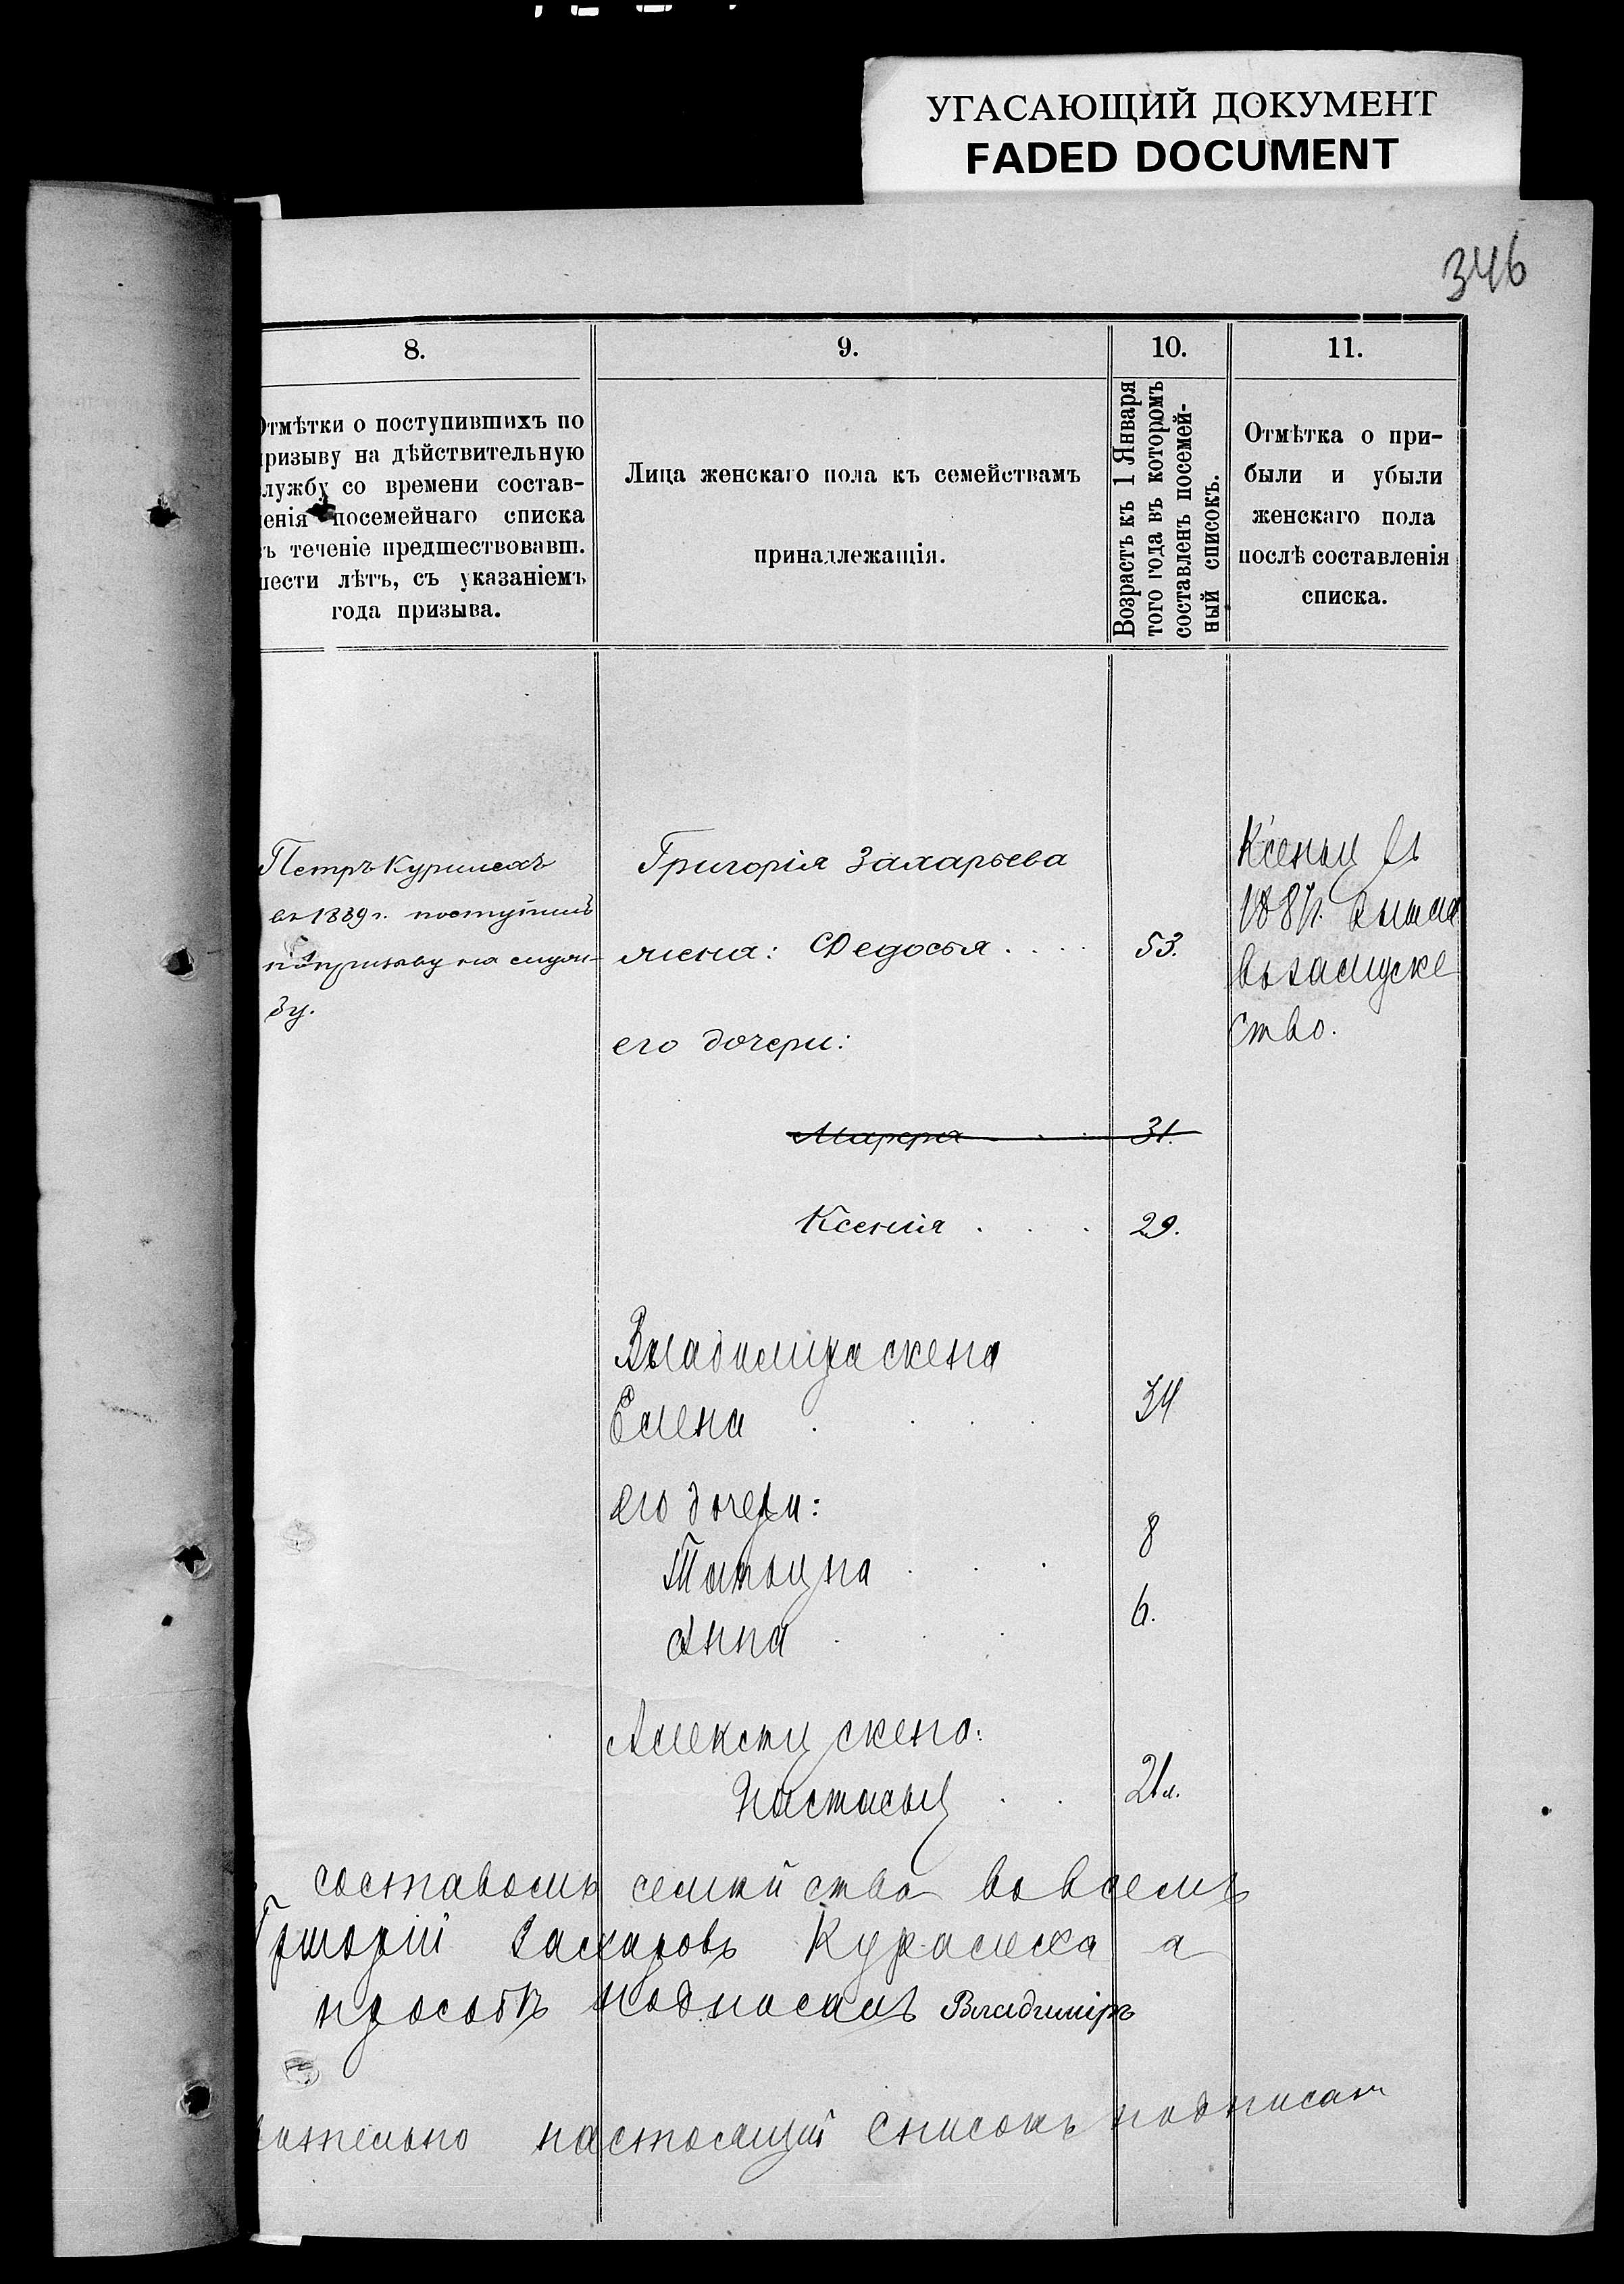 УГАСАЮЩИЙ ДОКУМЕНТ
FADED DOCUMENT
346
8.
9.
10.
11.
Отмѣтки о поступившихъ по
призыву на дѣйствительную
службу со времени состав-
ленія посемейнаго списка
въ теченіе предшествовавш.
шести лѣтъ, съ указаніемъ
года призыва.
Лица женскаго пола къ семействамъ
принадлежащія.
Возрастъ къ 1 Января
того года въ которомъ
составленъ посемей-
ный списокъ.
Отмѣтка о при-
были и убыли
женскаго пола
послѣ составленія
списка.
Петръ
въ 1889 г. поступилъ
по призыву на служ-
бу.
Григорія Захарьева
жена: Федосья . . . 53.
его дочери:
Марфа . . . 31.
Ксенія . . . 29.
Владимира жена
Елена . . . . 34
его дочери:
Татьяна . . . 8
Анна . . . 6.
Алексѣя жена:
Настасья . . 21л.
Ксенья въ
188 г. вышла
въ замуже
ство.
составомъ семейства во всемъ
Григорій Захаровъ а
просьбѣ подписалъ Владиміръ
настоящій списокъ подписалъ